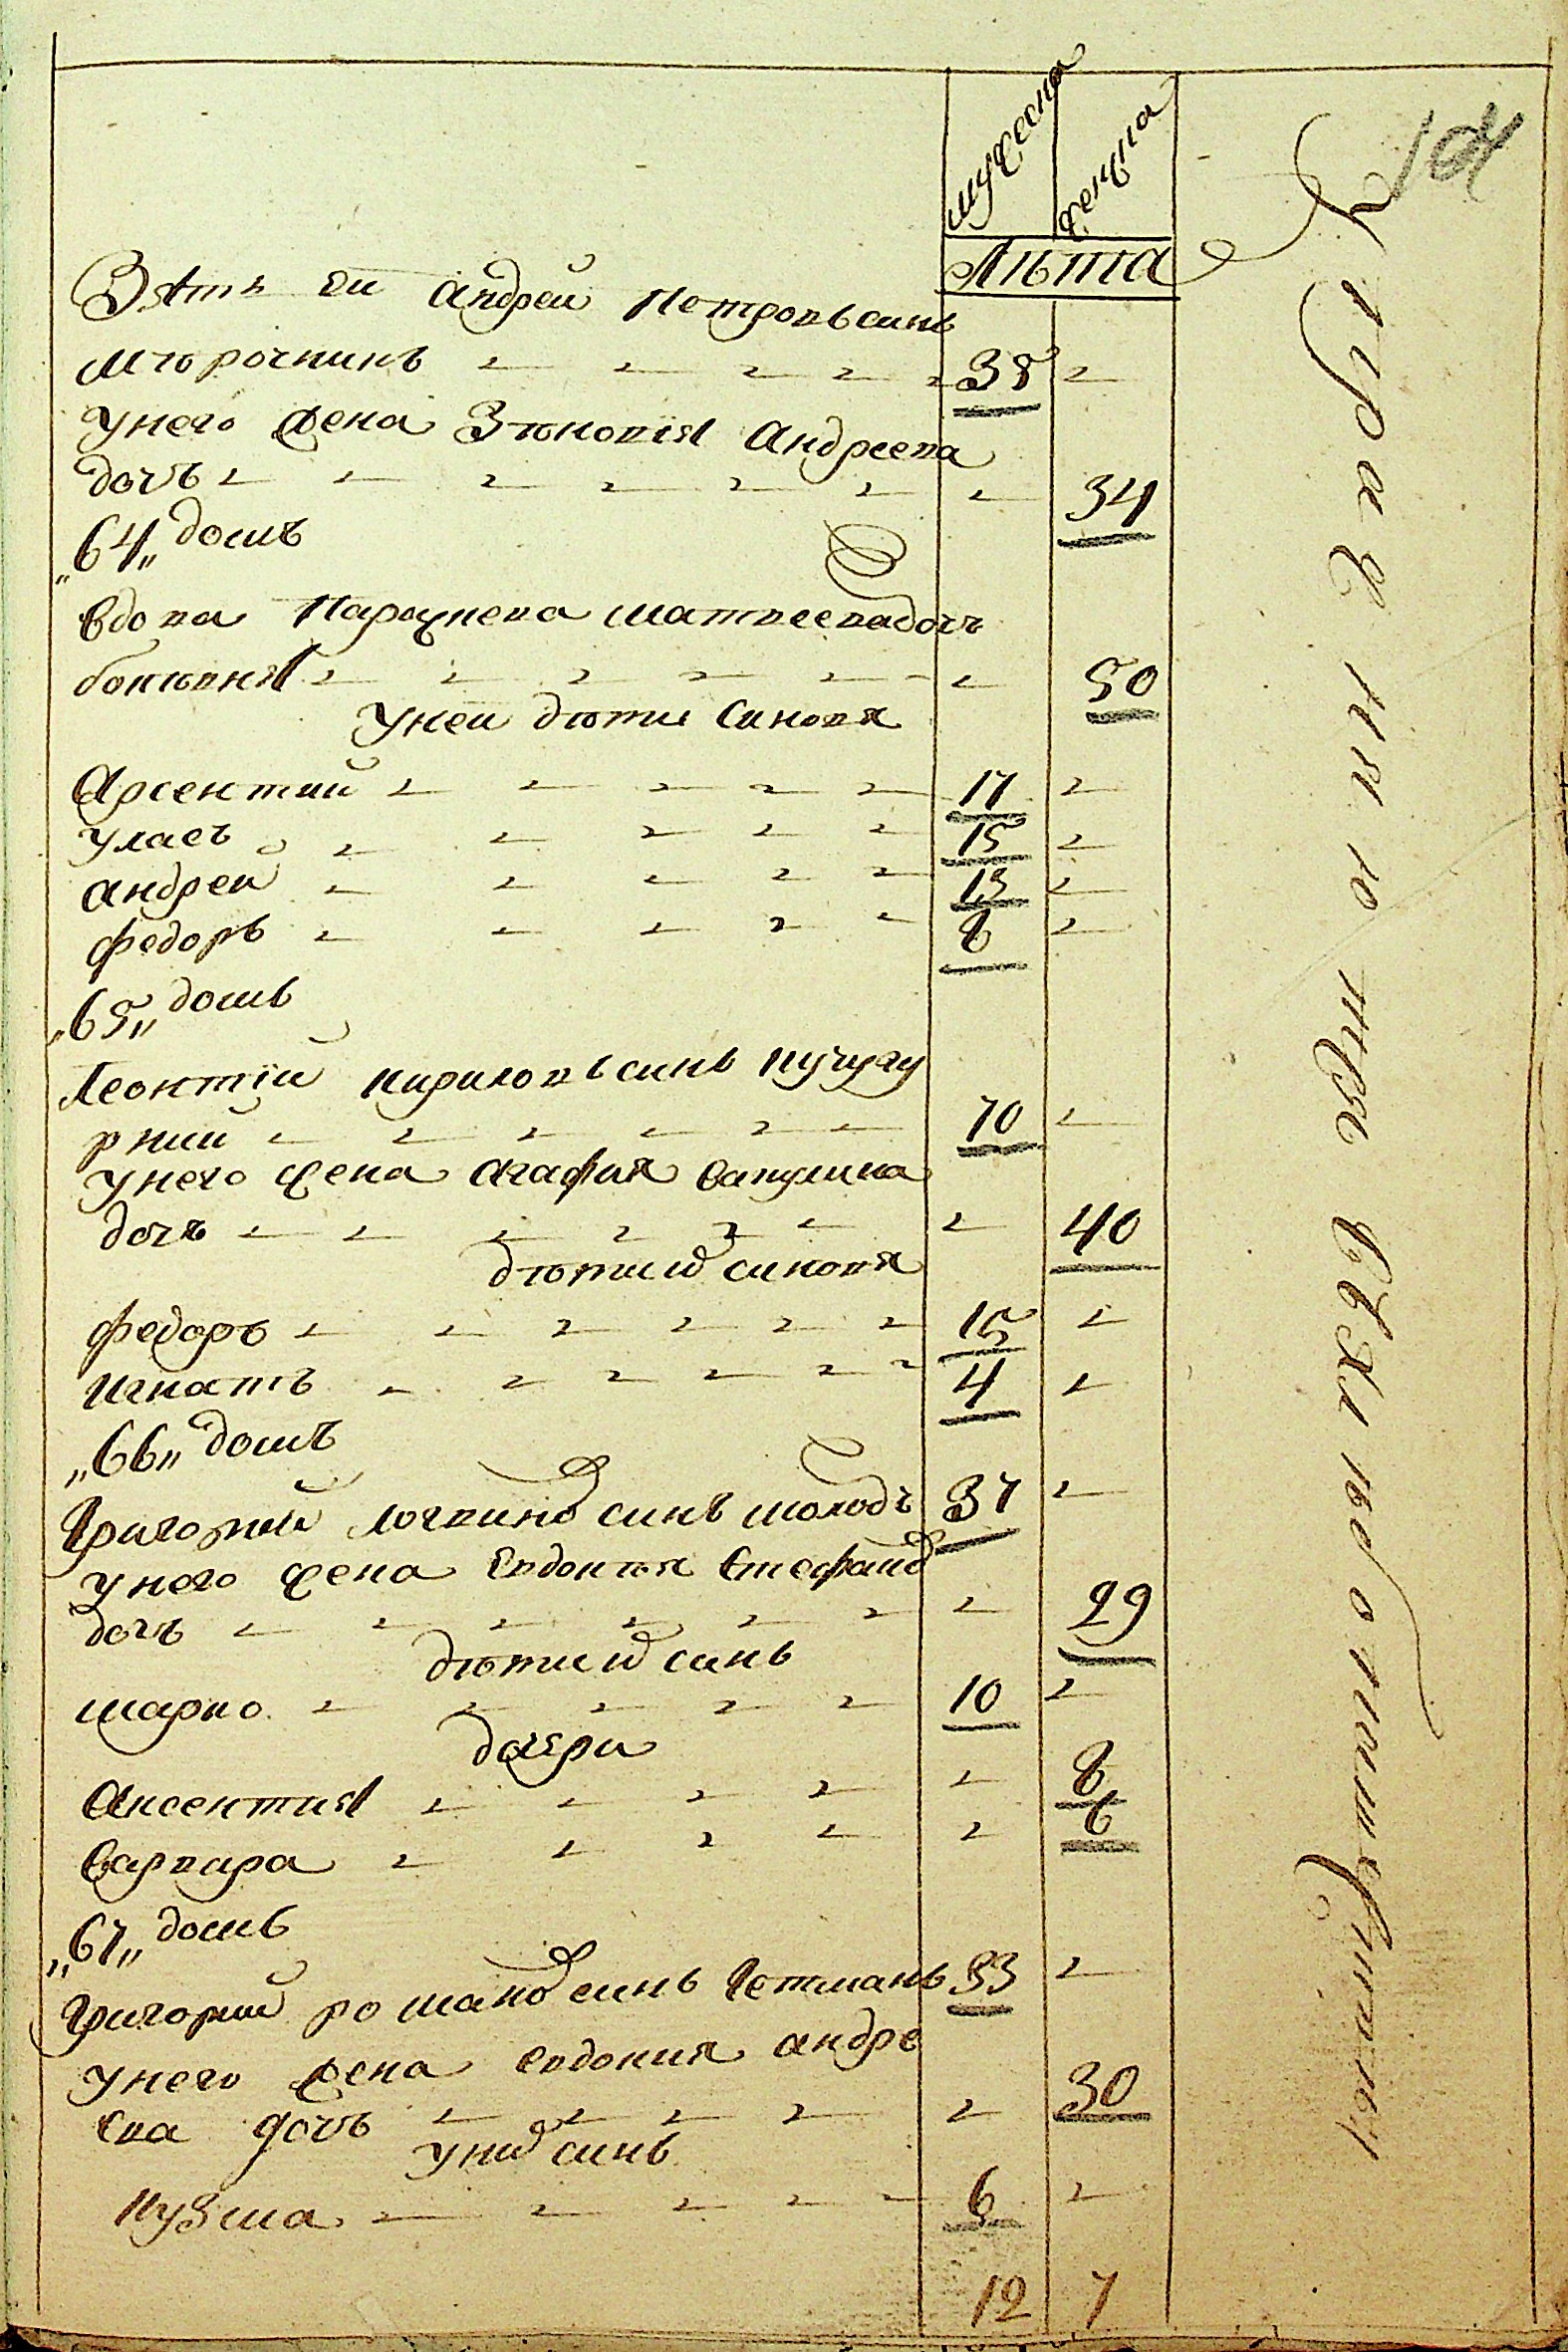 104
мужеска женска
Лѣта
Зять еи андрей Петровъ синъ
Мѣрочникъ 38
У него жена Зѣновія Андреева
дочъ 34
„64„ домъ
Вдова Параскева матвеева дочъ
У неи дѣти Синовя
Арсентий 17
Уласъ 15
андрей 13
федоръ 8
„65„ домъ
Леонтій кириловъ синъ кучугу
рний 70
У него жена Агафия Вакулина
дочъ 40
дѣти их синовя
федоръ 15
Игнатъ 4
„66„ домъ
Григорий логвинов синъ молодъ 37
У него жена Евдокия Стефанов
дочъ 29
дѣти их синъ
марко 10
дочери
Аксентия 8
Варвара 6
„67„ домъ
Григорий романов синъ Гетманъ 33
У него жена евдокия андре
ева дочъ 30
У них синъ
Кузма 6
12 7